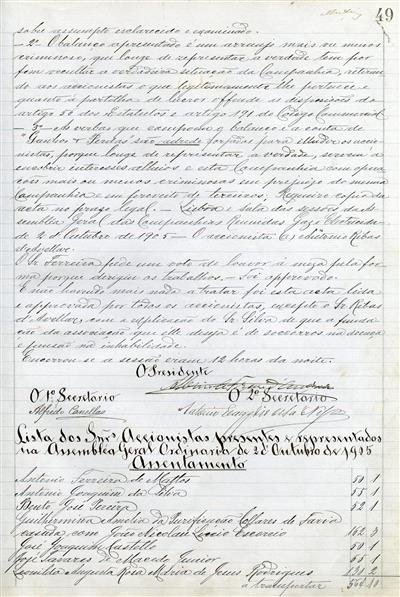 49
sobre assumpto esclarecido e examinado.
- 2º O balanço apresentado é um arranjo mais ou menos
criminoso, que longe de representar a verdade tem por
fim occultar a verdadeira situação da Companhia,
aos accionistas o que legitimamente lhe pertence e
quanto a partilha de lucros offende as disposições do
artigo 50 dos Estatutos e artigo 191 do Codigo Commercial
- 3º As verbas que compõem o balanço e a conta de
"Ganhos e Perdas são adrede forjadas para illudir os accio-
nistas, porque longe de representar a verdade, servem a
encobrir interesses alheios e esta Companhia com opera
ções mais ou menos criminosas em prejuizo da mesma
Companhia e em proveito de terceiros. Requeiro copia da
acta no prazo legal. - Lisboa e sala das sessões da As-
semblea Geral das Companhias Reunidas Gaz e Electricidade
de 2 d'Outubro de 1905 - O accionista (a) Antonio Ribas
d'Avellar.
O Sr Ferreira pede um voto de louvor á meza pela for
ma porque dirigiu os trabalhos. - Foi approvado.
E não havendo mais nada a tratar foi esta acta lida
e approvada por todos os accionistas, excepto o Sr Ribas
d'Avellar, com a explicação do Sr Silva de que a funda
ção da associação que elle deseja é de soccorros na doença
e pensão na inhabilidade.
Encerrou-se a sessão eram 12 horas da noite.
O Presidente
O 1º Secretário
O 2º Secretário
Alfredo Canellas
Lista dos Snrs Accionistas presentes e representados
na Assemblea Geral Ordinaria de 2 d'Outubro de 1905
Assentamento
Antonio Ferreira de Mattos 50 1
Antonio Joaquim da Silva 55 1
Bento José Pereira 52 1
Guilhermina Amelia da Purificação Collares de Faria
casada com João Nicolau Escorcio 162 3
José Joaquim Castello 50 1
José Tavares de Macedo Junior 55 1
Camilla Augusta Rosa Maria de Jesus Rodrigues 2
a transportar 10